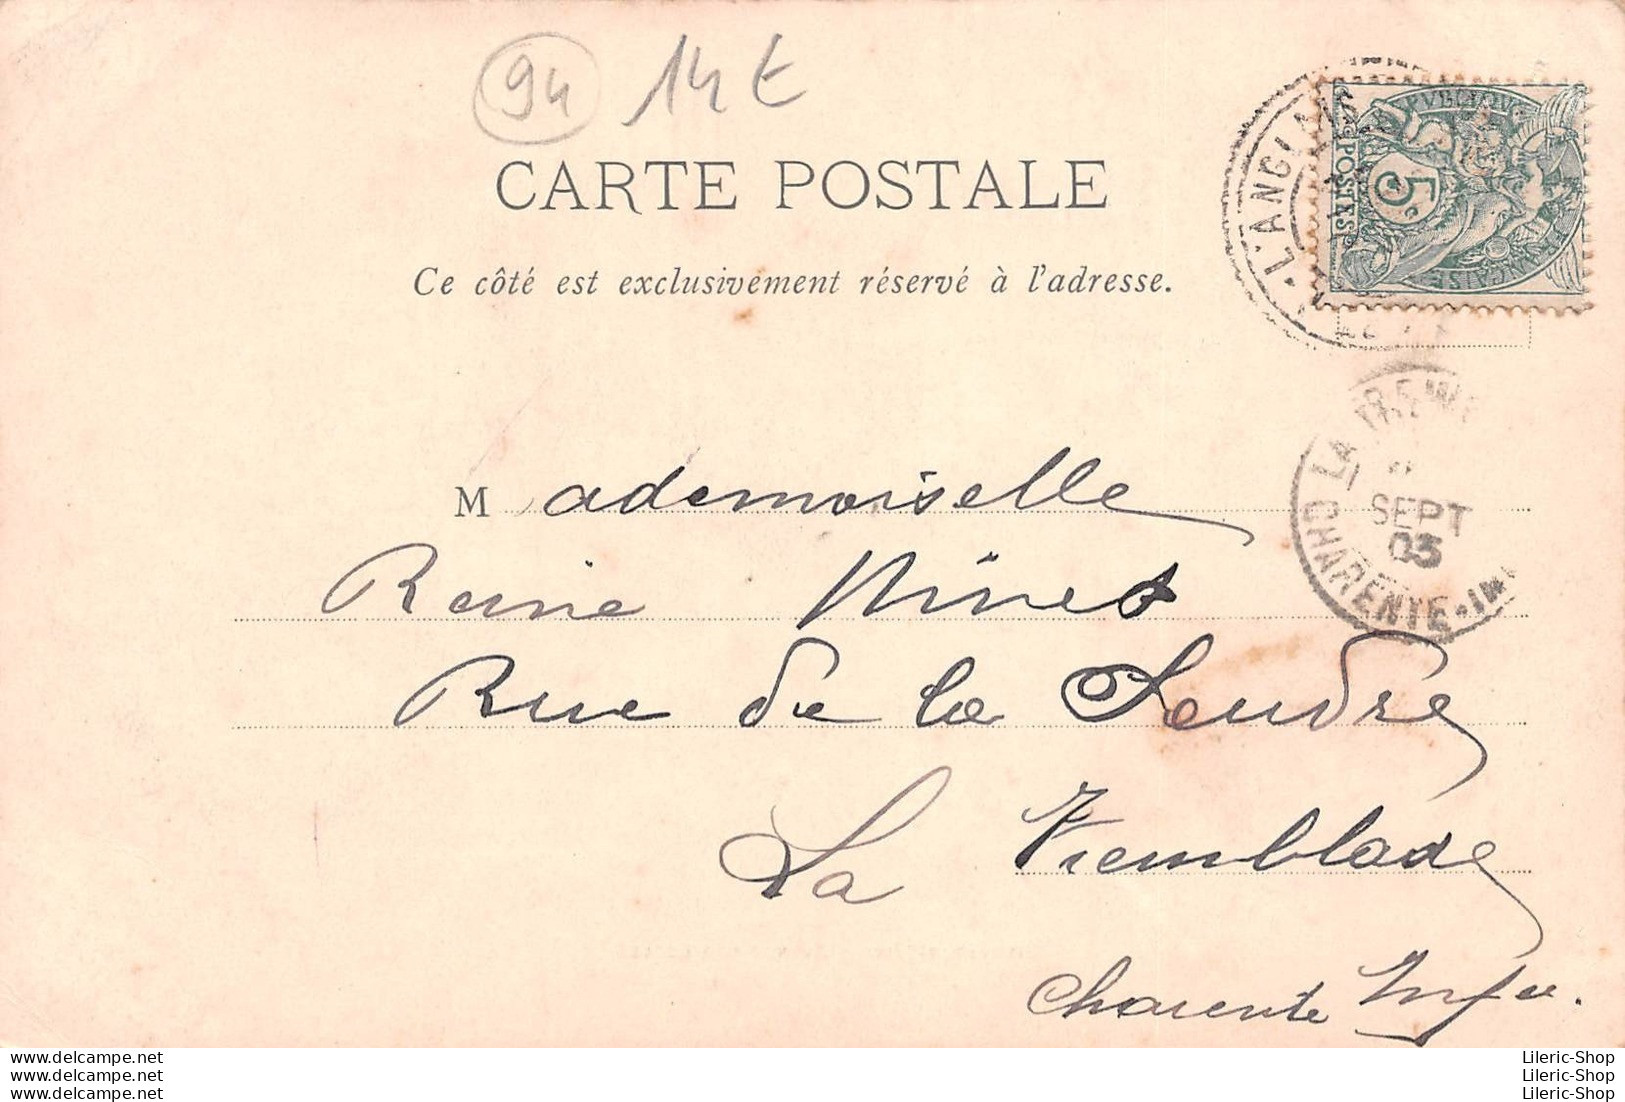 94 14 €
CARTE POSTALE
Ce côté est exclusivement réservé à l'adresse.
RÉPUBLIQUE FRANÇAISE
POSTES
5 c
L'ANGL
LA TREMB
SEPT
03
CHARENTE-IN
Mademoiselle
Reine Ninet
Rue de la Seudre
La Tremblade
Charente Infre.
delcampe.net
delcampe.net
delcampe.net
Lileric-Shop
Lileric-Shop
Lileric-Shop